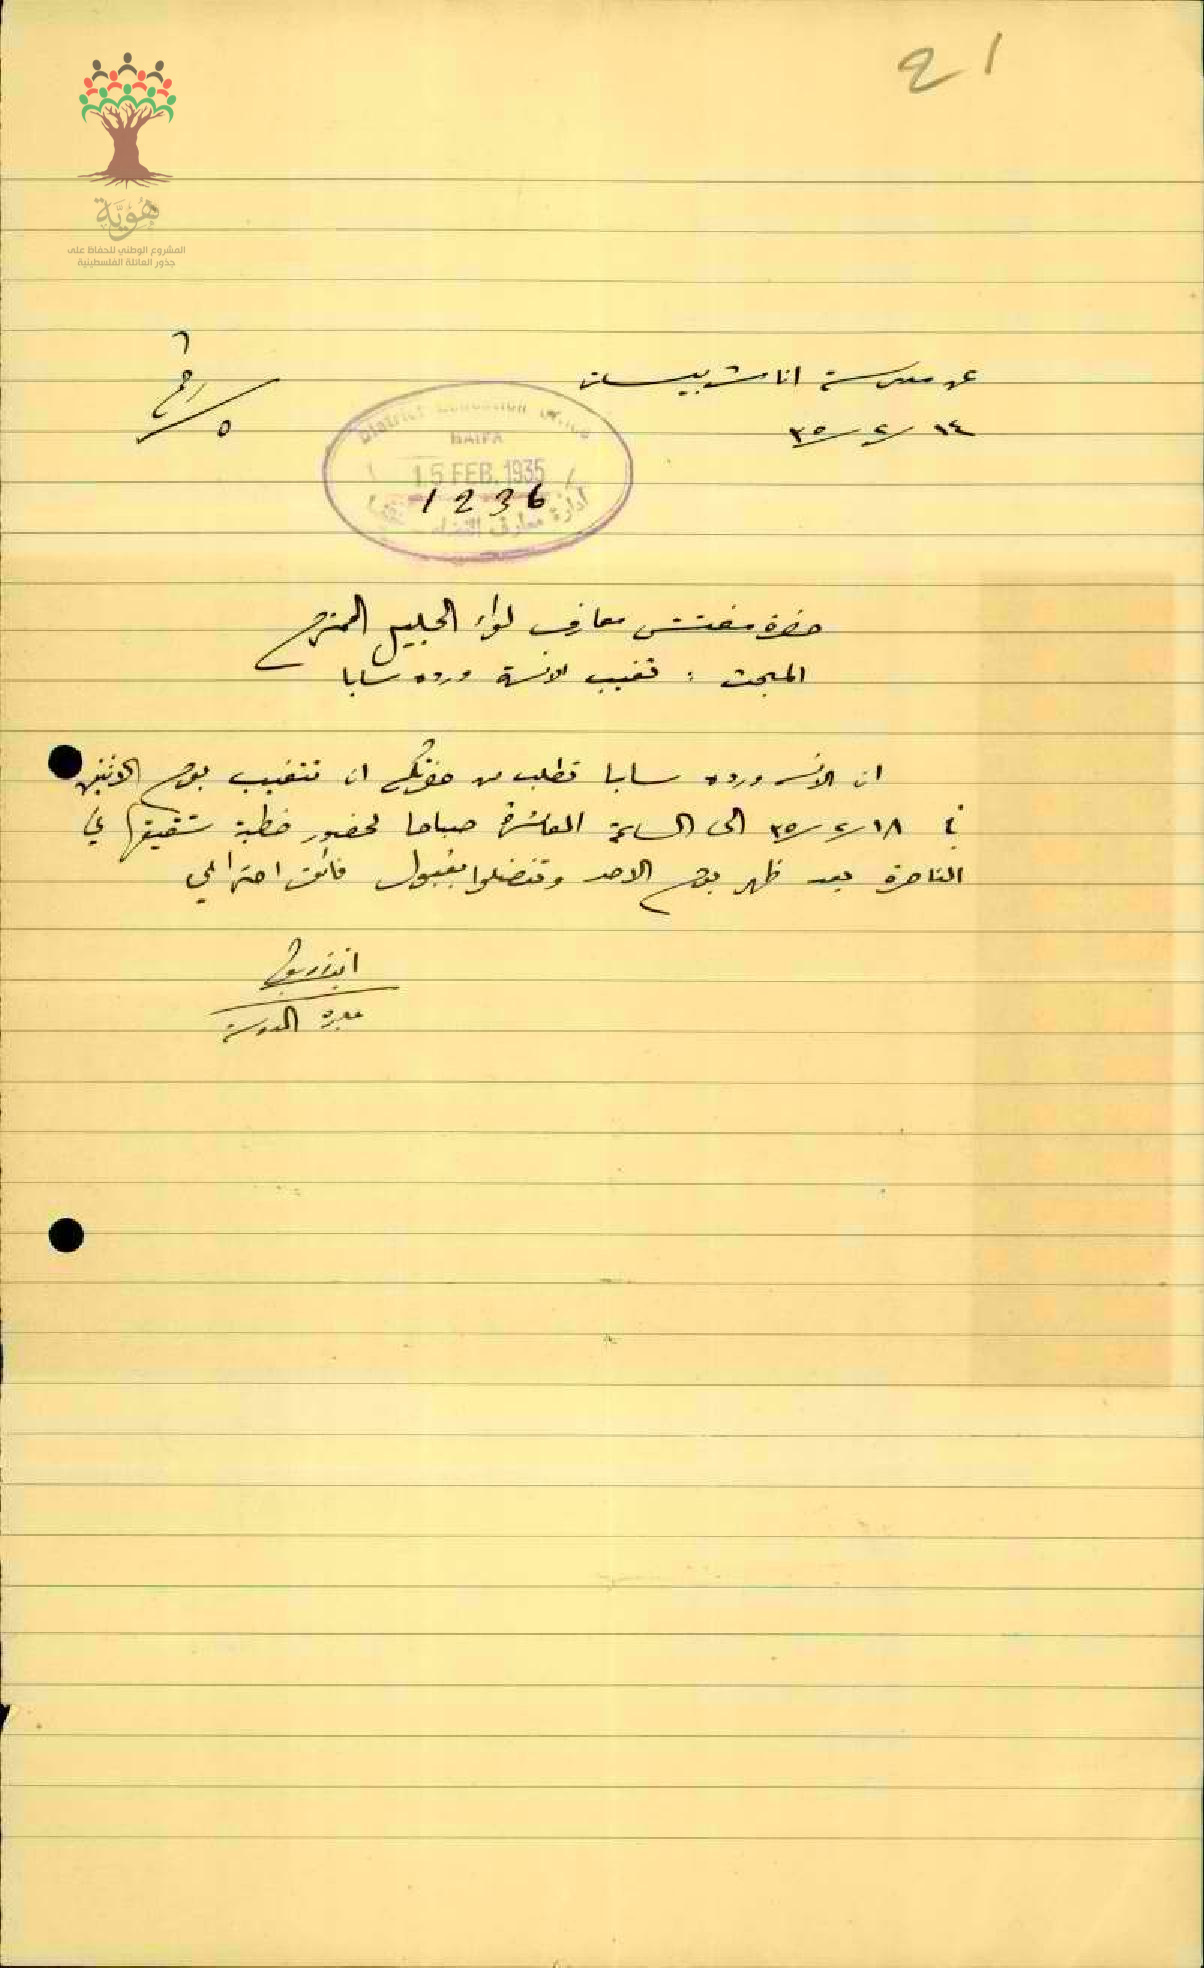 ٤١
هُوِيَّة
المشروع الوطني للحفاظ على
جذور العائلة الفلسطينية
عن مدرسة اناث بيسان
١٤/٢/٣٥
٦
٥
District Education Office
HAIFA
15 FEB. 1935
1236
ادارة معارف القضاء حيفا
حضرة مفتش معارف لواء الجليل المحترم
المبحث : تغيب الانسة ورده سابا
ان الانسة ورده سابا تطلب من حضرتكم ان تتغيب يوم الاثنين
في ١٨/٢/٣٥ الى الساعة العاشرة صباحا لحضور خطبة شقيقها في
الناصرة بعد ظهر يوم الاحد وتفضلوا بقبول فائق احترامي
مديرة المدرسة